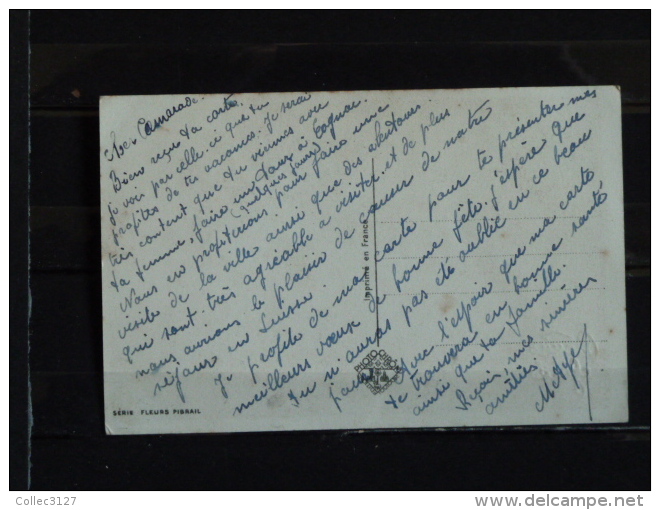 Cher Camarade.
Bien reçu ta carte.
Je vois par celle-ci que tu
profites de tes vacances. Je serai
très content que tu viennes avec
ta femme, faire un tour à Cognac
(quelques jours)
Nous en profiterions pour faire une
visite de la ville ainsi que des alentours
qui sont très agréable à visiter et de plus
nous aurions le plaisir de causer de notre
séjour en Suisse.
Je profite de ma carte pour te présenter mes
meilleurs vœux de bonne fête. J'espère que
Tu n'auras pas été oublié en ce beau
jour
Avec l'espoir que ma carte
te trouvera en bonne santé
ainsi que ta famille.
Reçois, mes sincères
amitiés.
Imprimé en France
PHOTOCHROM
SÉRIE FLEURS FIBRAIL
Collec3127
delcampe.net